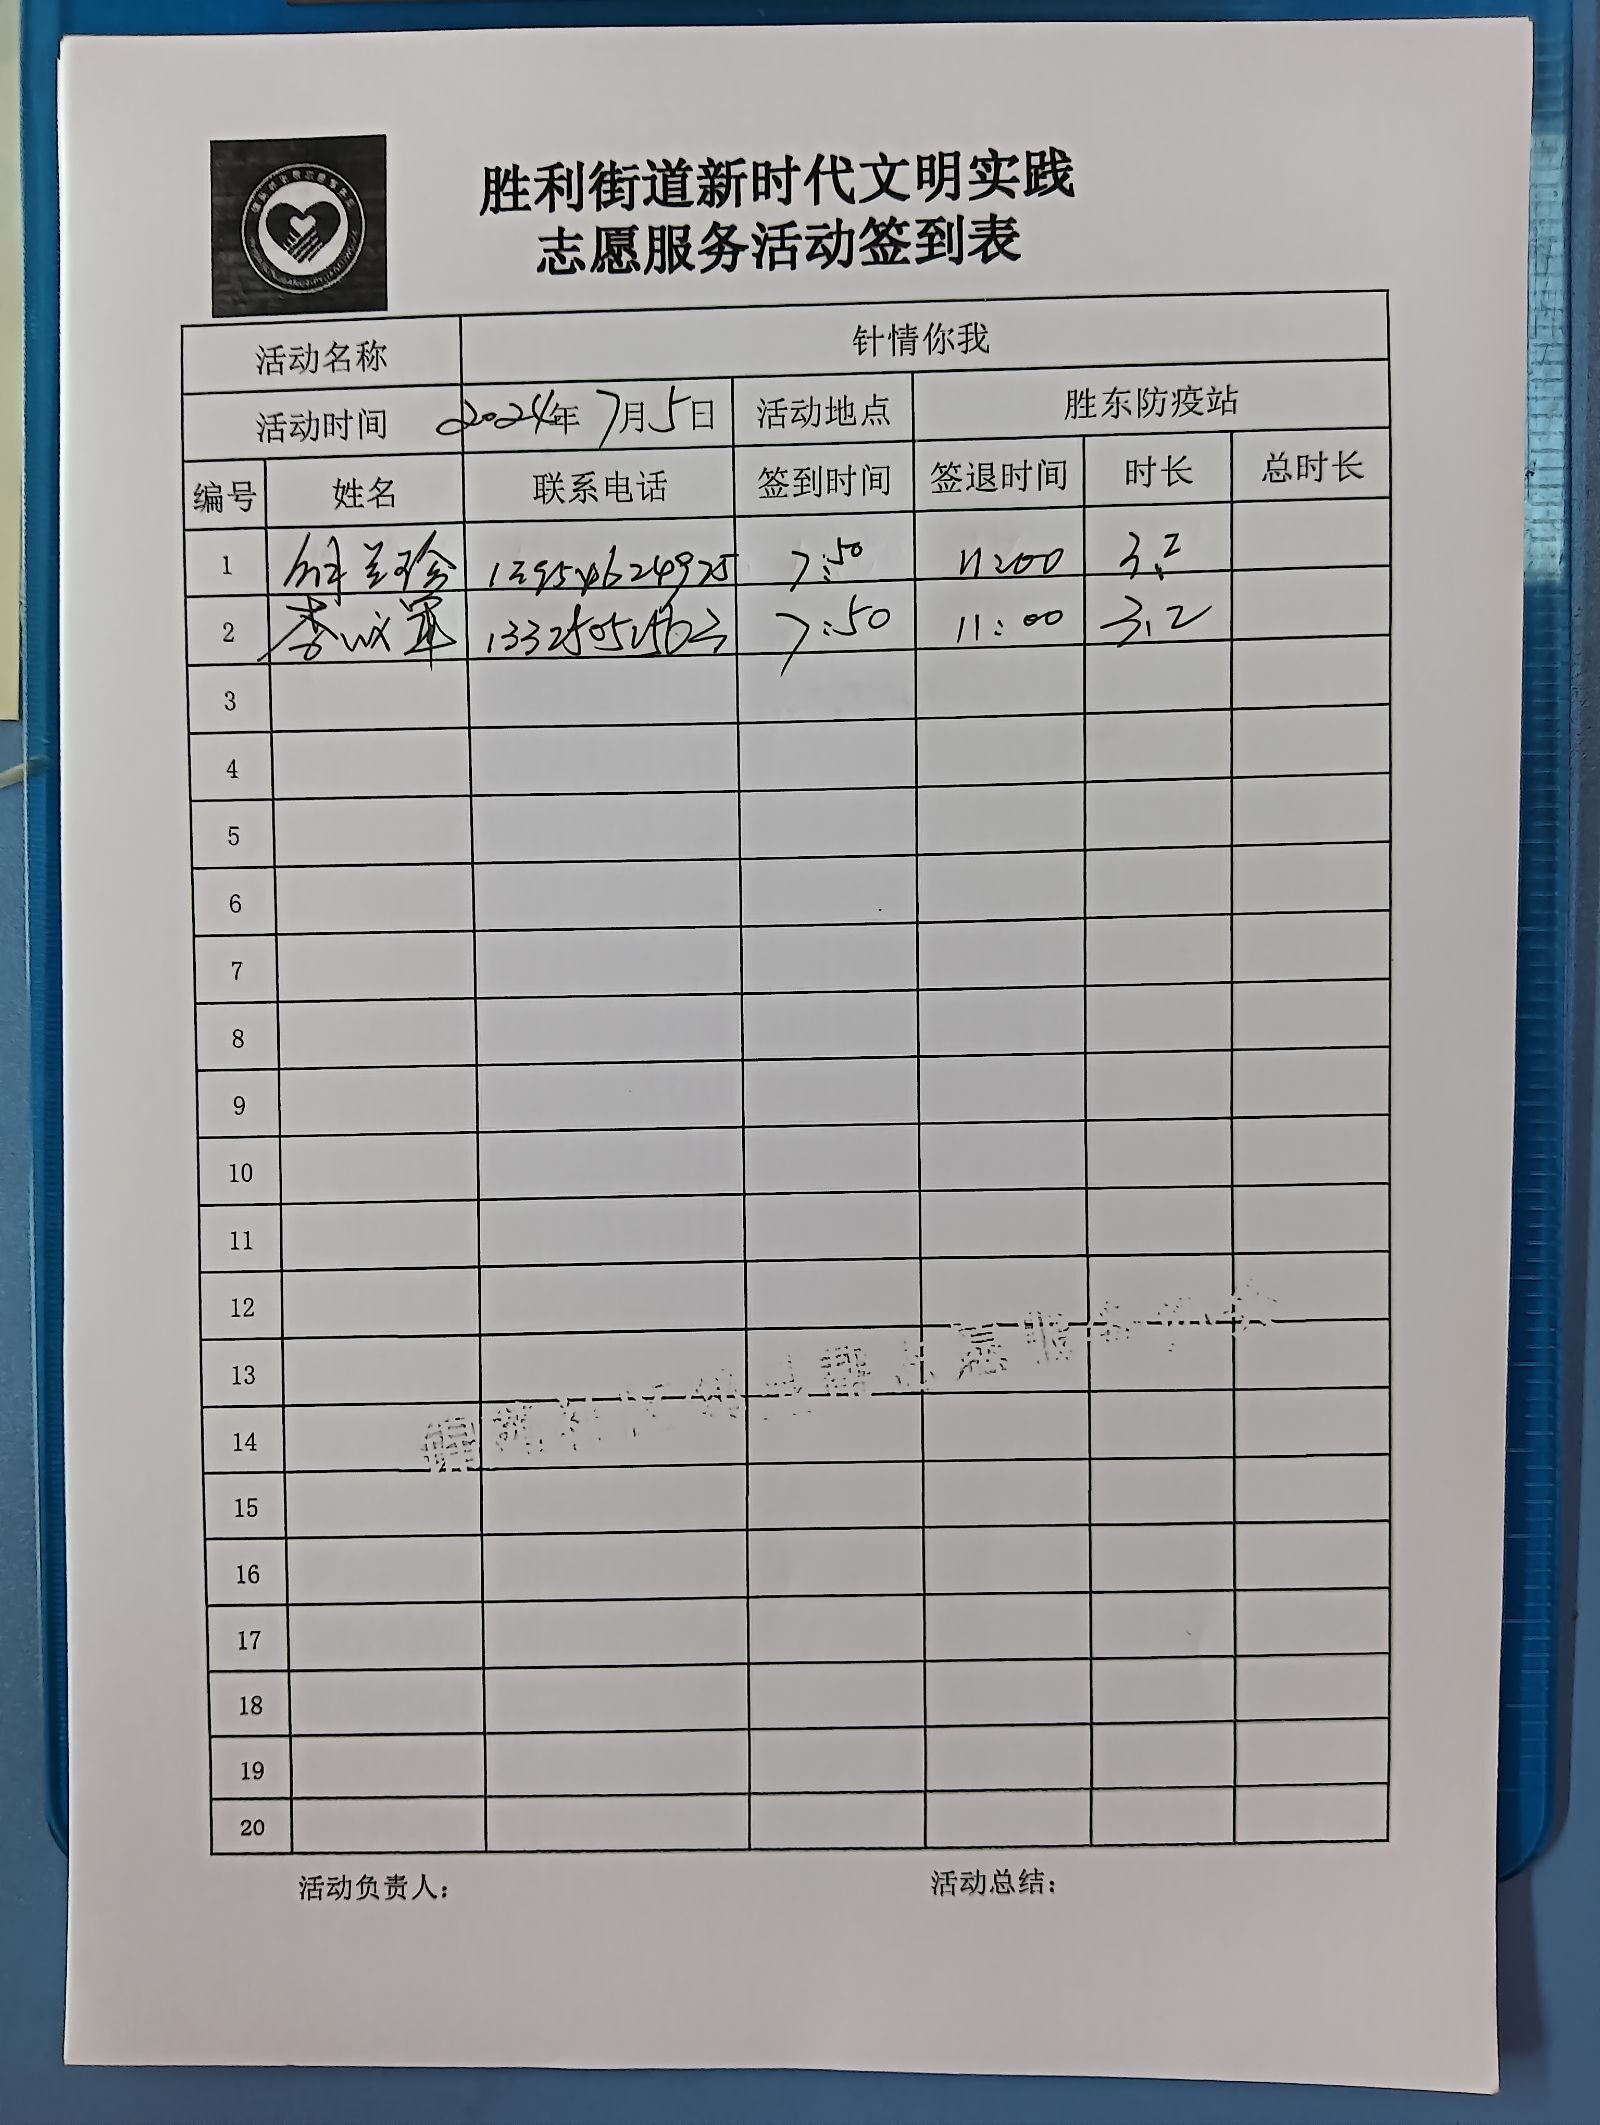 胜利街道新时代文明实践
志愿服务活动签到表
活动名称 针情你我
活动时间 2024年 7月5日 活动地点 胜东防疫站
编号 姓名 联系电话 签到时间 签退时间 时长 总时长
1 兰珍 7:50 11:00 3.2
2 李 军 7:50 11:00 3.2
3
4
5
6
7
8
9
10
11
12
13
14
15
16
17
18
19
20
活动负责人: 活动总结: